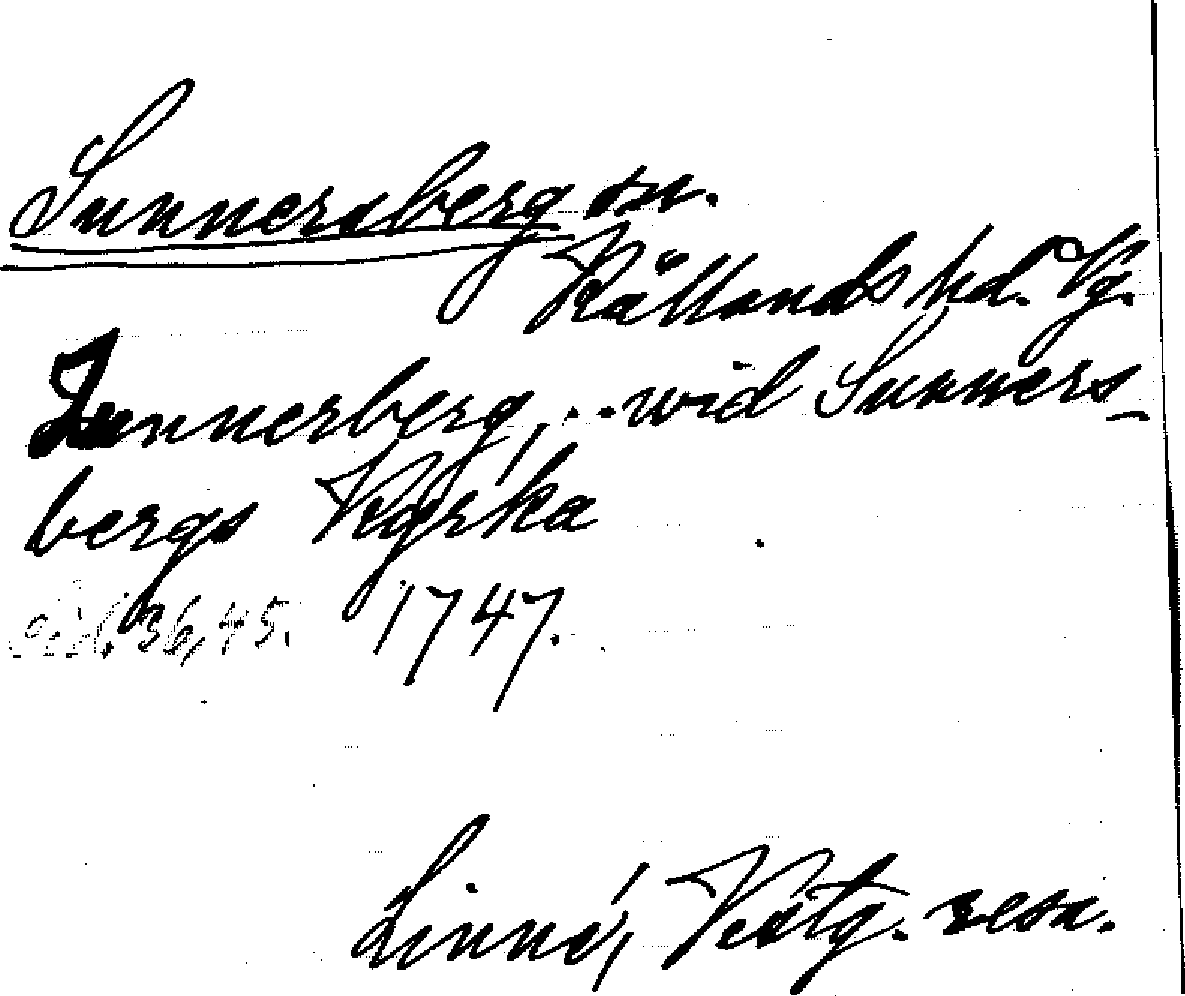 Sunnersberg sn.
Kållands hd. Vg.
Sunnerberg, .. wid Sunners-
bergs Kyrka
36, 45. 1747.
Linné, Västg. resa.